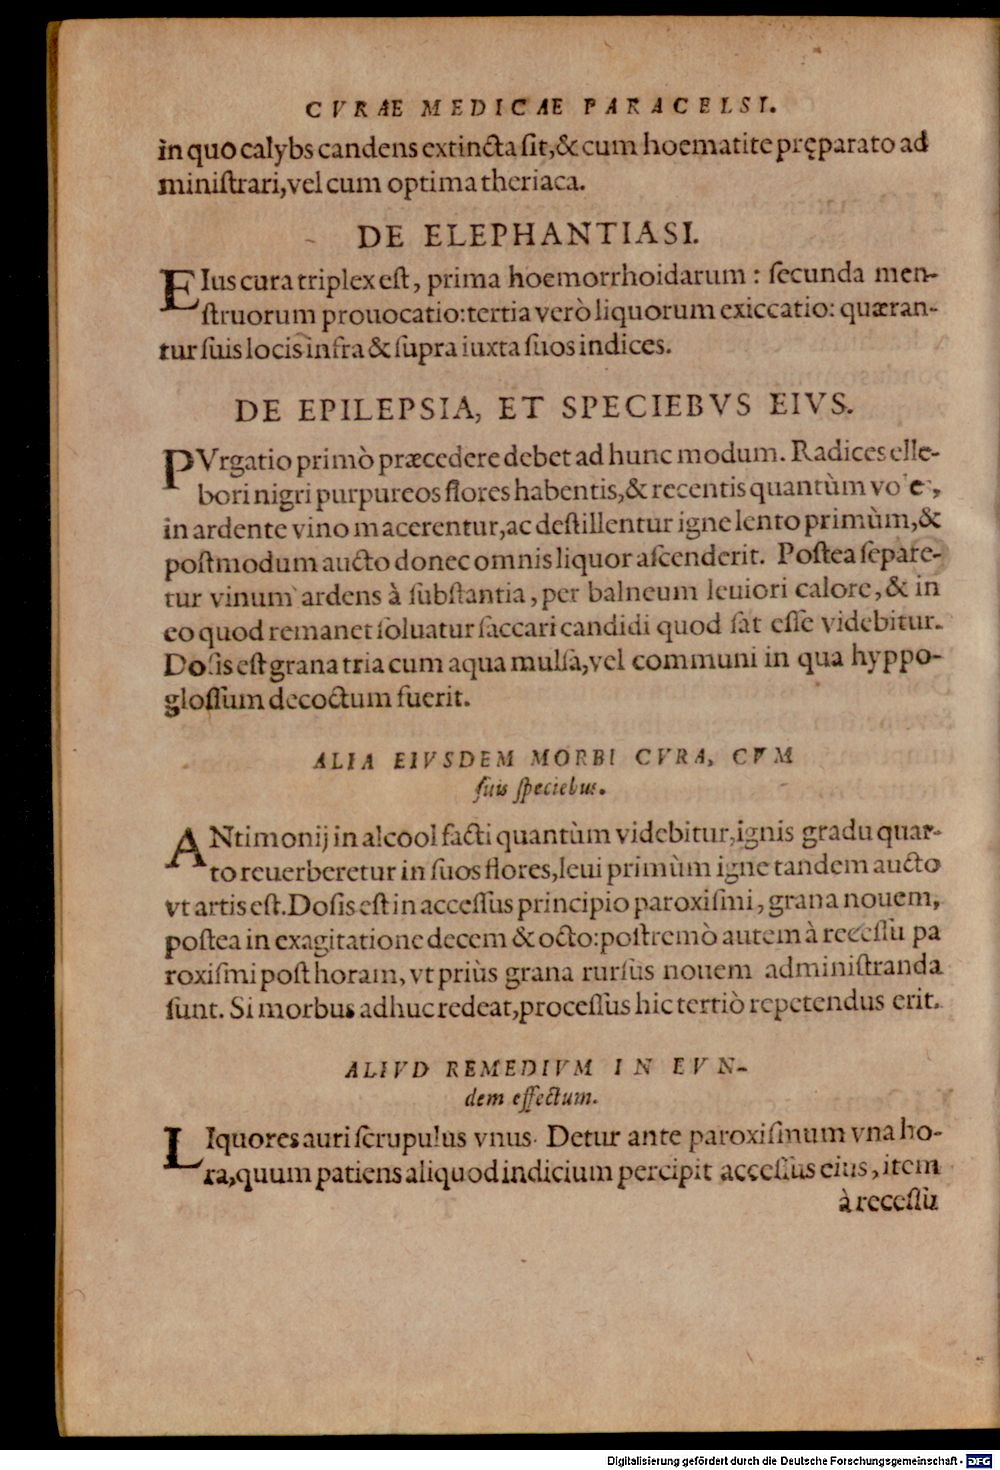 CVRAE MEDICAE PARACELSI.
in quo calybs candens extincta ſit, & cum hoematite pręparato ad
miniſtrari, vel cum optima theriaca.
DE ELEPHANTIASI.
EIus cura triplex eſt, prima hoemorrhoidarum : ſecunda men-
ſtruorum prouocatio: tertia verò liquorum exiccatio: quæran-
tur ſuis locis infra & ſupra iuxta ſuos indices.
DE EPILEPSIA, ET SPECIEBVS EIVS.
PVrgatio primò præcedere debet ad hunc modum. Radices elle-
bori nigri purpureos flores habentis, & recentis quantùm
in ardente vino macerentur, ac deſtillentur igne lento primùm, &
poſtmodum aucto donec omnis liquor aſcenderit. Poſtea ſepare-
tur vinum ardens à ſubſtantia, per balneum leuiori calore, & in
eo quod remanet ſoluatur ſaccari candidi quod ſat eſſe videbitur.
Doſis eſt grana tria cum aqua mulſa, vel communi in qua hyppo-
gloſſum decoctum fuerit.
ALIA EIVSDEM MORBI CVRA, CVM
ſuis ſpeciebus.
ANtimonij in alcool facti quantùm videbitur, ignis gradu quar-
to reuerberetur in ſuos flores, leui primùm igne tandem aucto
vt artis eſt. Doſis eſt in acceſſus principio paroxiſmi, grana nouem,
poſtea in exagitatione decem & octo: poſtremò autem à receſſu pa
roxiſmi poſt horam, vt priùs grana rurſus nouem adminiſtranda
ſunt. Si morbus adhuc redeat, proceſſus hic tertiò repetendus erit.
ALIVD REMEDIVM IN EVN-
dem effectum.
LIquores auri ſcrupulus vnus. Detur ante paroxiſmum vna ho-
ra, quum patiens aliquod indicium percipit acceſſus eius, item
à receſſu
Digitalisierung gefördert durch die Deutsche Forschungsgemeinschaft - DFG